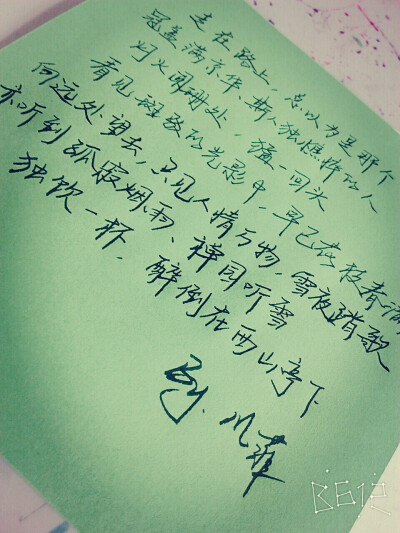 走在路上，总以为是那个
冠盖满京华，斯人独憔悴的人
灯火阑珊处，猛一回头
看见斑驳的光影中，早已落被春满
向远处望去，只见人情与物，雪夜踏歌
亦听到孤寂烟雨、禅同听雪
独饮一杯，醉倒在西山亭下
凡菲
B612